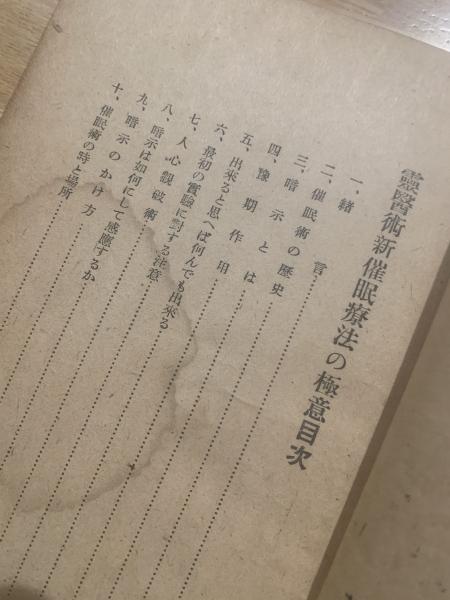 靈醫術新催眠療法の極意目次
一、緒言
二、催眠術の歴史
三、暗示とは
四、豫期作用
五、出來ると思へば何んでも出來る
六、最初の實驗に對する注意
七、人心觀破術
八、暗示は如何にして感應するか
九、暗示のかけ方
十、催眠術の時と場所